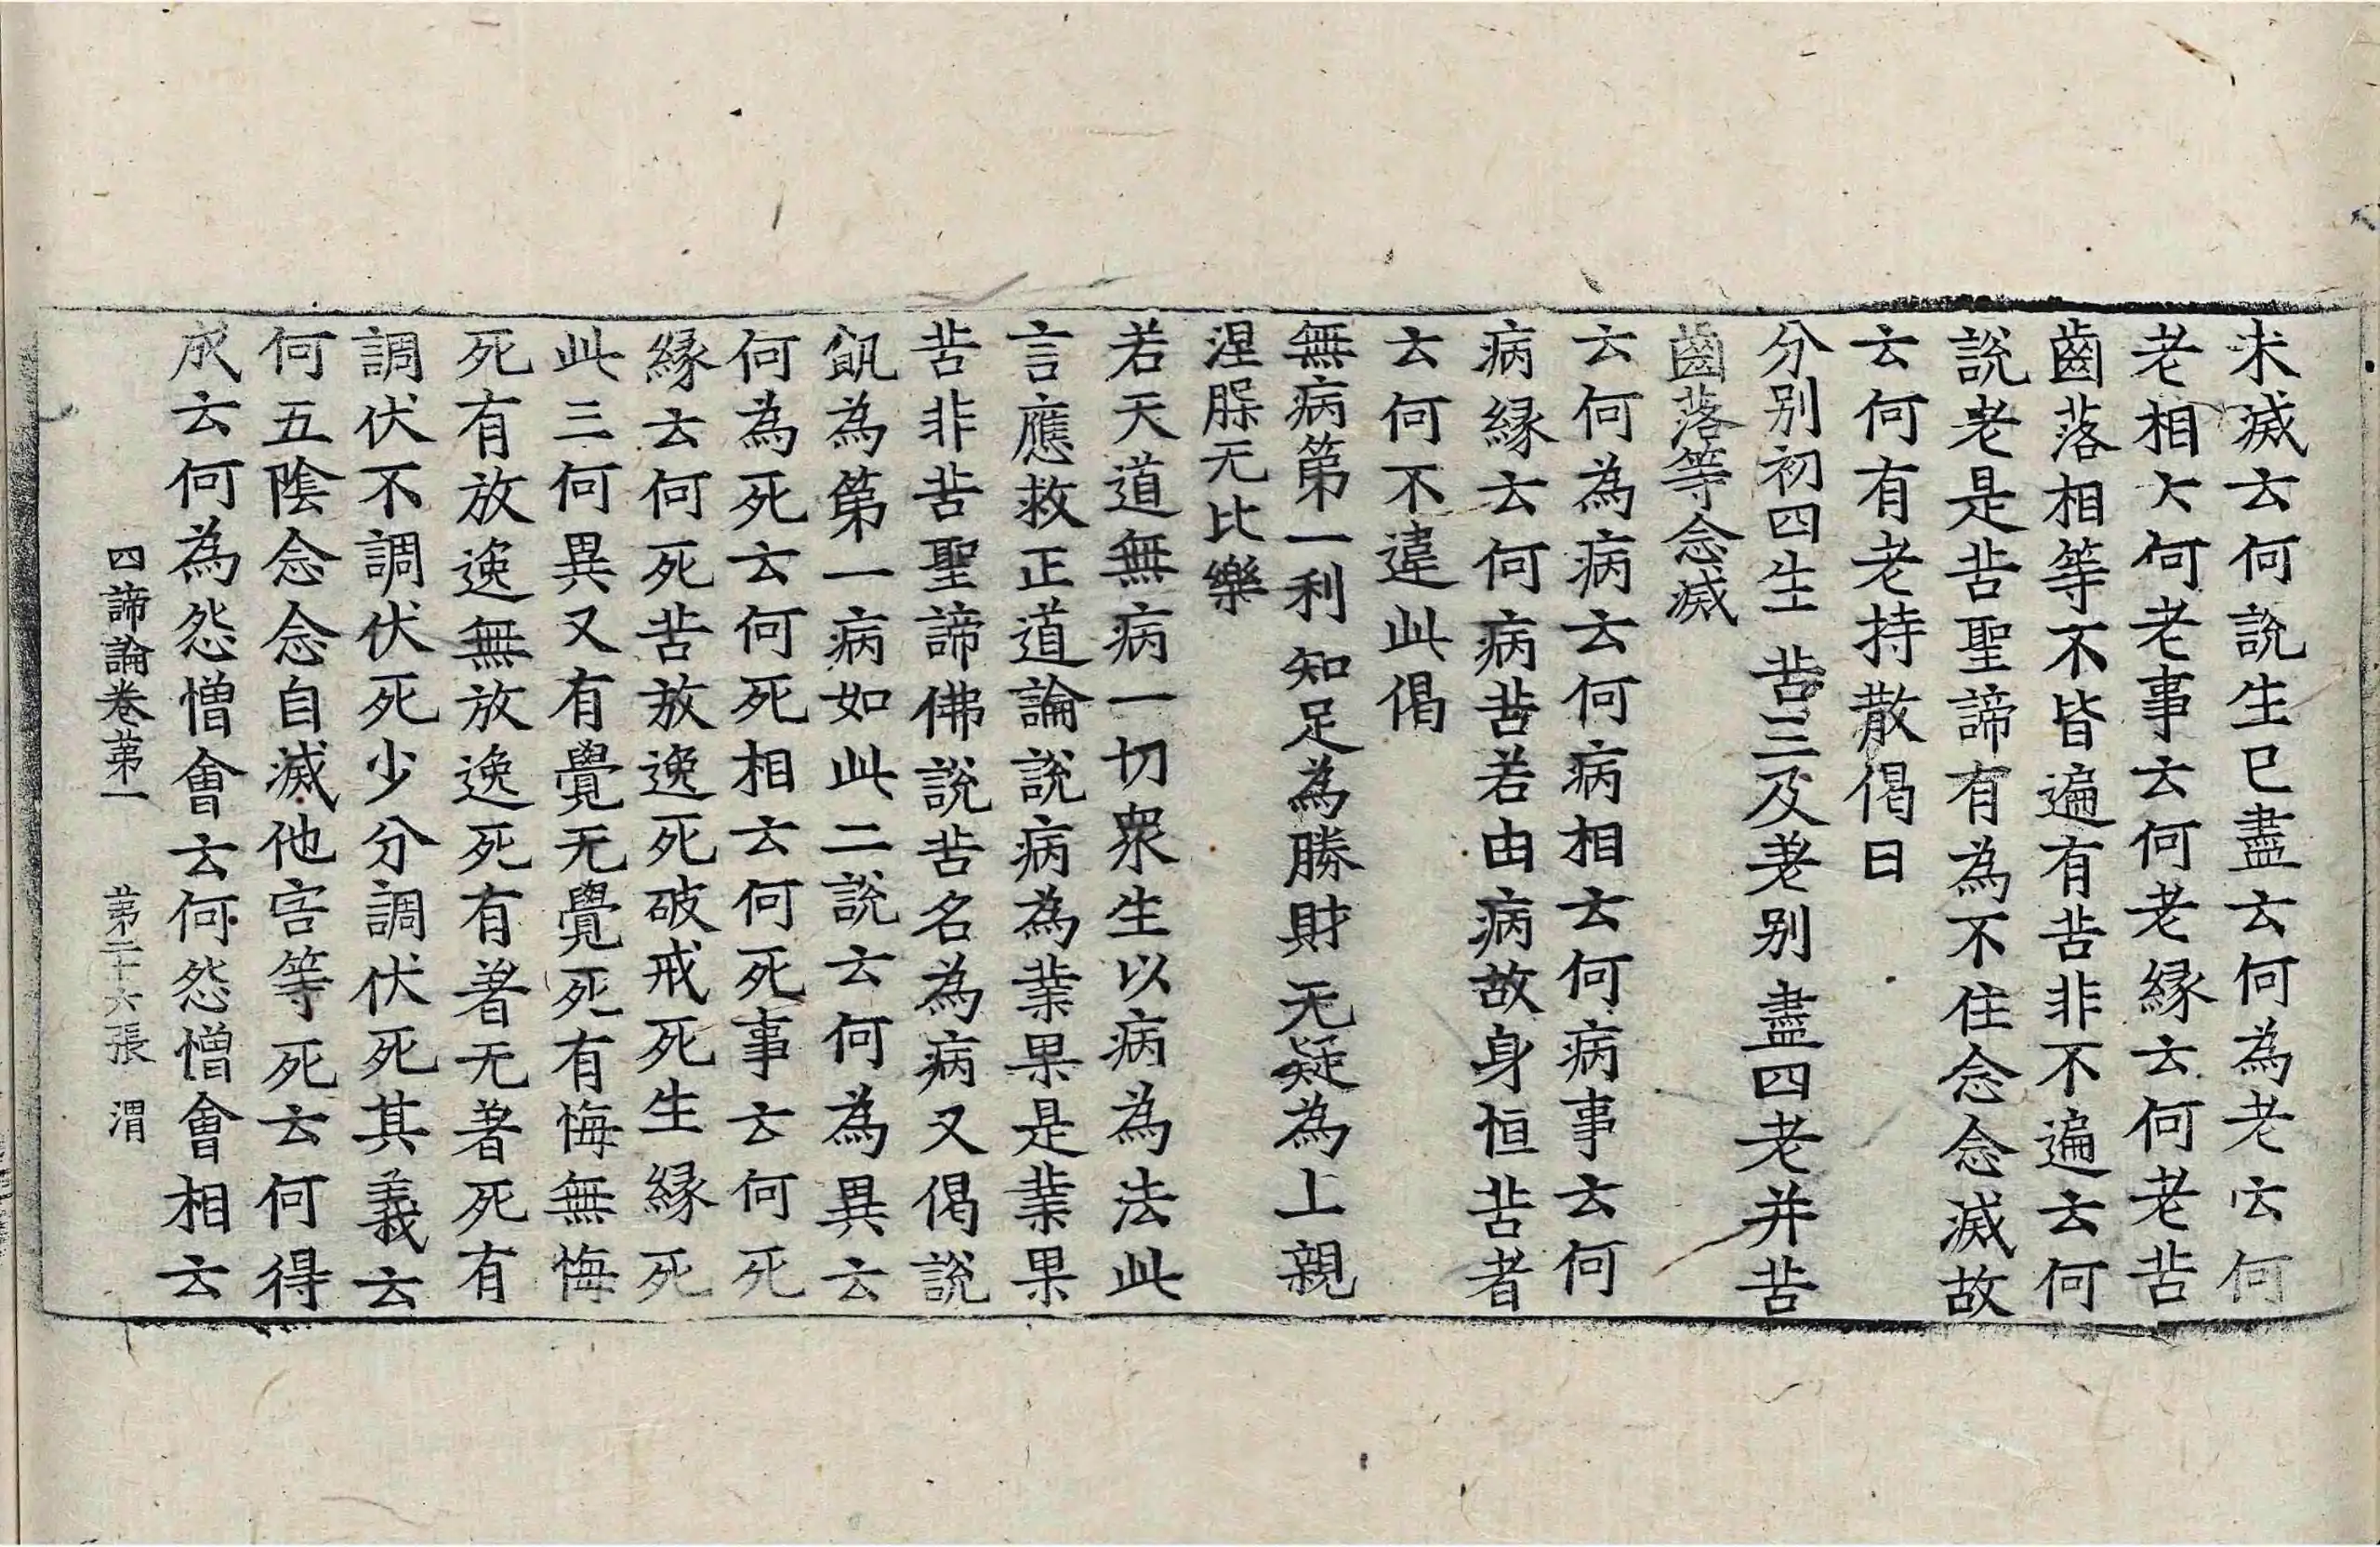 未滅云何說生已盡云何為老云何
老相大何老事云何老緣云何老苦
齒落相等不皆遍有苦非不遍云何
說老是苦聖諦有為不住念念滅故
云何有老持散偈曰
分別初四生 苦三及老別 盡四老并苦
齒落等念滅
云何為病云何病相云何病事云何
病緣云何病苦若由病故身恒苦者
云何不違此偈
無病第一利 知足為勝財 无疑為上親
涅脲无比樂
若天道無病一切眾生以病為法此
言應救正道論說病為業果是業果
苦非苦聖諦佛說苦名為病又偈說
飢為第一病如此二說云何為異云
何為死云何死相云何死事云何死
緣云何死苦放逸死破戒死生緣死
此三何異又有覺无覺死有悔無悔
死有放逸無放逸死有著无著死有
調伏不調伏死少分調伏死其義云
何五陰念念自滅他害等死云何得
成云何為怨憎會云何怨憎會相云
四諦論卷第一 第二十六張 渭